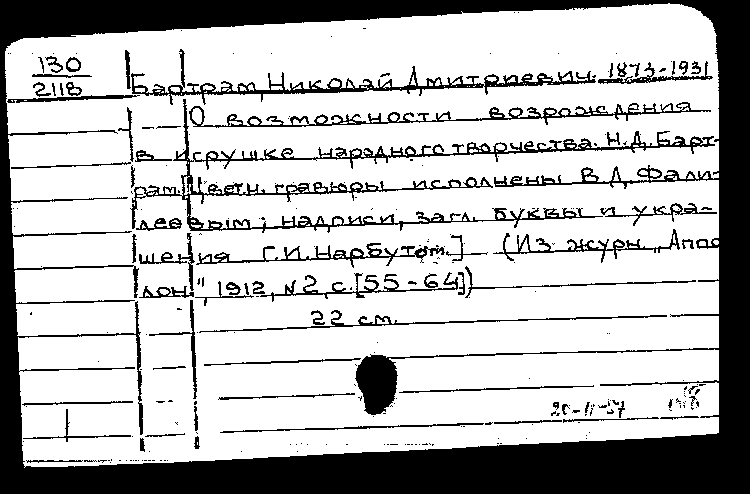 130
2118
Бартрам, Николай Дмитриевич. 1873-1931
О возможности возрождения
в игрушке народного творчества. Н.Д. Барт-
рам. [Цветн. гравюры исполнены В.Д. Фали-
леевым; надписи, загл. буквы и укра-
шения Г.И. Нарбутом.] (Из журн. „Аппо
лон", 1912, №2, с. [55-64])
22 см.
20-11-57